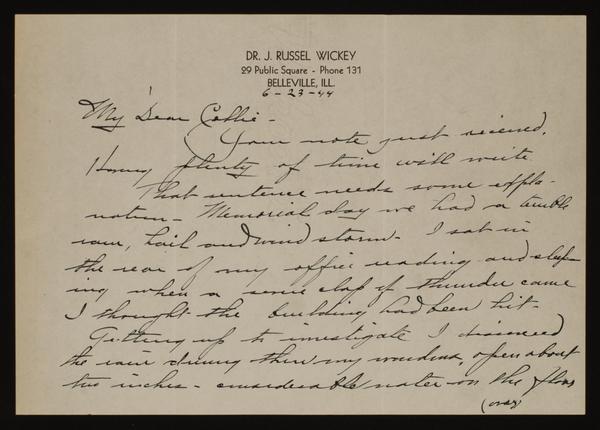 DR. J. RUSSEL WICKEY
29 Public Square - Phone 131
BELLEVILLE, ILL.
6-23-44
My Dear Collie -
Your note just received.
Having plenty of time will write
That sentence needs some expla-
nation - Memorial day we had a terrible
rain, hail and wind storm - I sat in
the rear of my office reading and sleep-
ing when a some clap of thunder came
I thought the building had been hit -
Getting up to investigate I discovered
the rain driving thru my windows, open about
two inches - considerable water on the floor
(over)